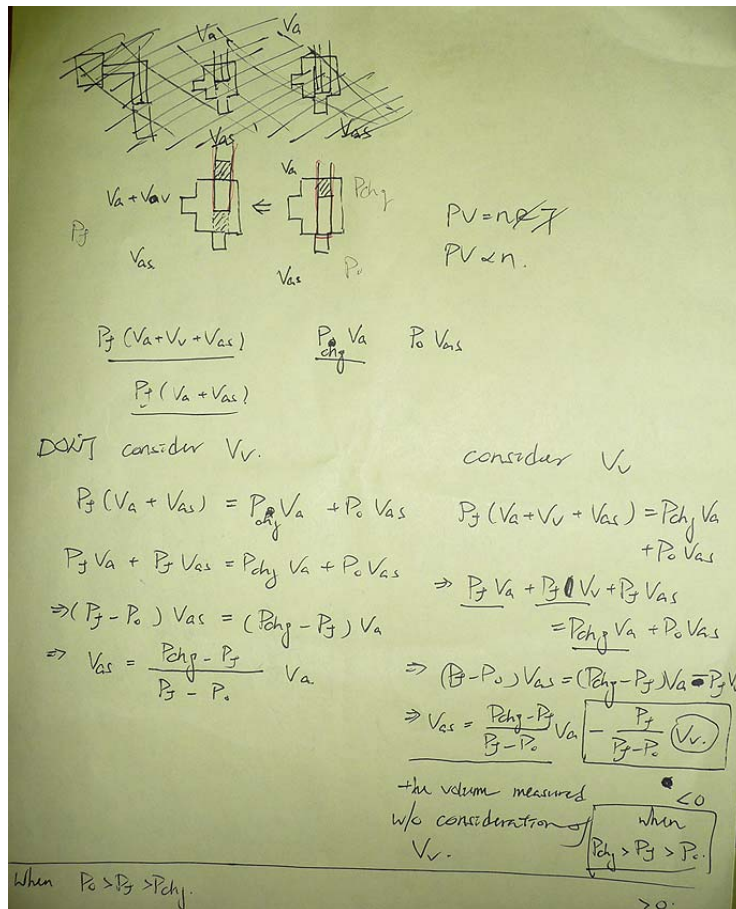 Va Va
Vas Vas
Va + Vav ⇐ Va Pchg
Pf Vas Vas P₀
PV = nRT
PV ∝ n.
Pf (Va + Vv + Vas) Pchg Va P₀ Vas
Pf (Va + Vas)
DON'T consider Vv.
Pf (Va + Vas) = Pchg Va + P₀ Vas
Pf Va + Pf Vas = Pchg Va + P₀ Vas
⇒ (Pf - P₀) Vas = (Pchg - Pf) Va
⇒ Vas = (Pchg - Pf) / (Pf - P₀) Va
consider Vv
Pf (Va + Vv + Vas) = Pchg Va
+ P₀ Vas
⇒ Pf Va + Pf Vv + Pf Vas
= Pchg Va + P₀ Vas
⇒ (Pf - P₀) Vas = (Pchg - Pf) Va - Pf V
⇒ Vas = (Pchg - Pf) / (Pf - P₀) Va - Pf / (Pf - P₀) Vv.
the volum measured
w/o consideration of
Vv.
< 0
when
Pchg > Pf > P₀.
When P₀ > Pf > Pchg.
> 0.